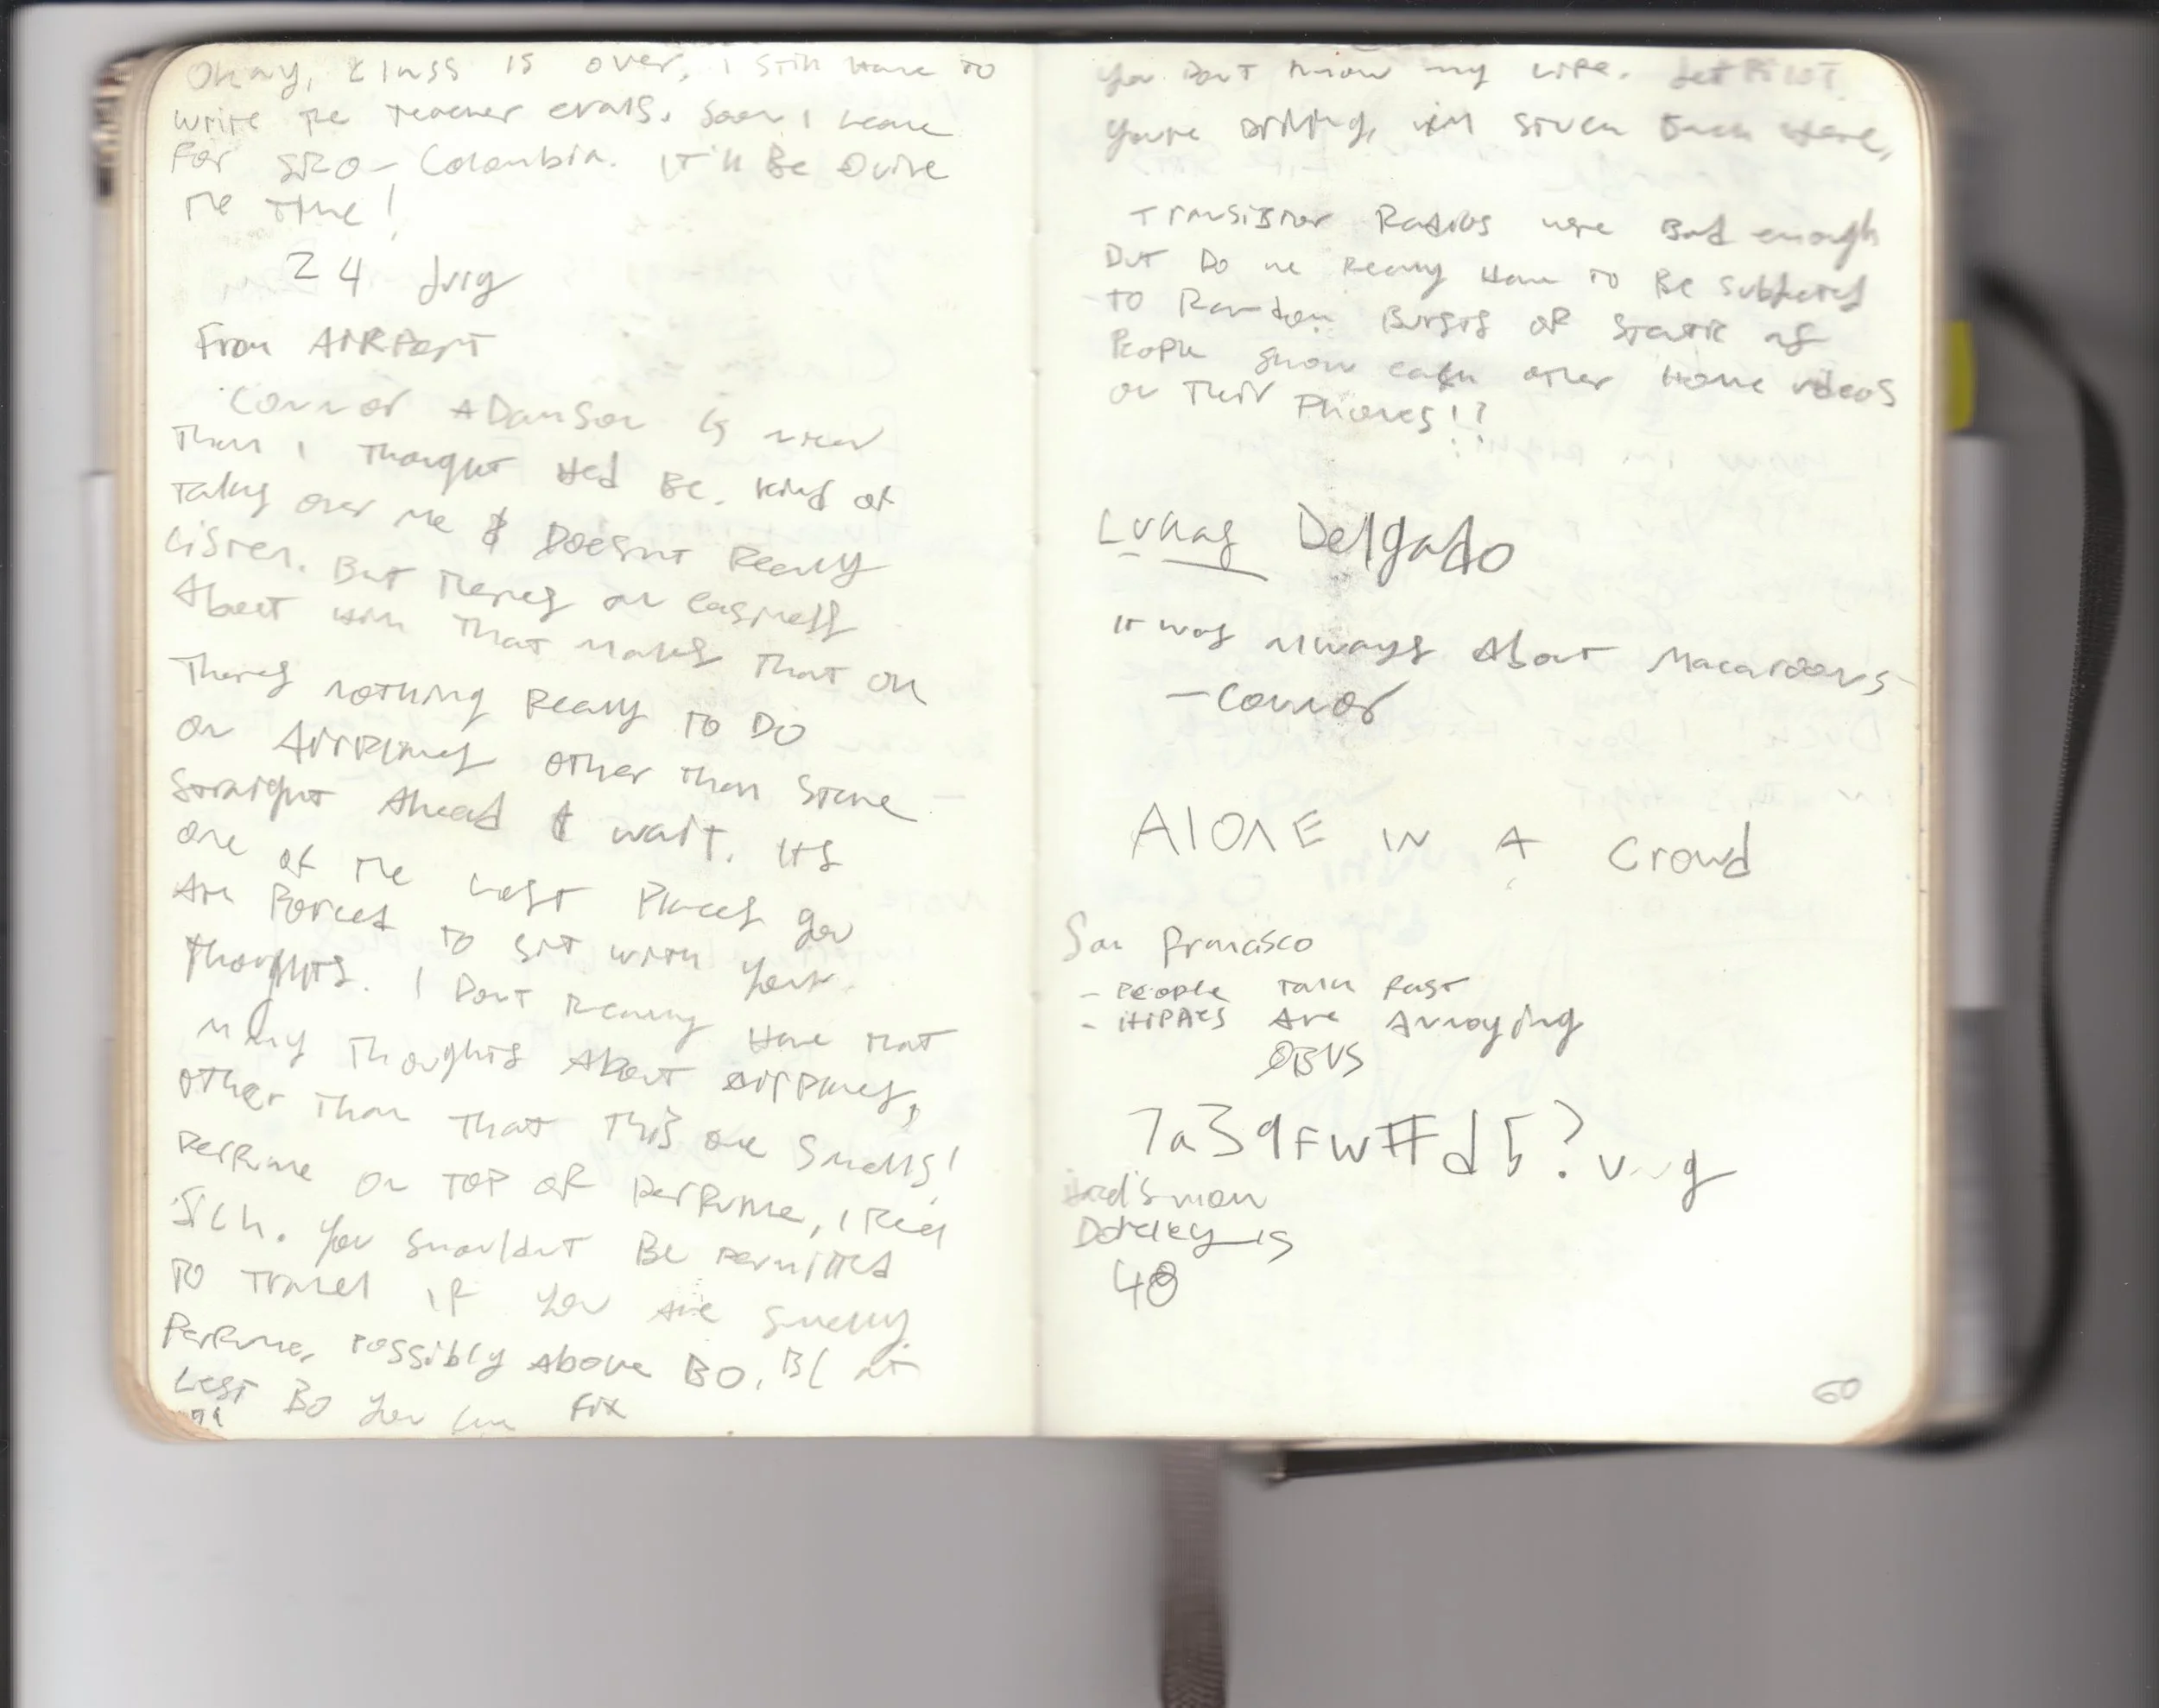 Okay, class is over, I still have to
write the teacher evals. Soon I leave
for SRO - Colombia. It'll be quite
the time!
24 July
From Airport
Connor Adamson is
than I thought He'd be. Kind of
talks over me & Doesn't really
listen. But there's an easiness
about him that makes that ok
There's nothing really to do
on Airplanes other than stare
straight ahead & wait. It's
one of the last places you
are forced to sit with your
thoughts. I Don't really have that
many thoughts about airplanes,
other than that this one smells!
Perfume on top of perfume, I feel
sick. You shouldn't be permitted
to travel if you are smelly
Perfume, possibly above BO, BC at
least BO you can fix
You don't know my life. Jet Pilot
You're driving, I'm stuck back here,
Transistor Radios were bad enough
But do we really have to be subjected
to random bursts of static as
people show each other home videos
on their phones!?
Lukas Delgado
It was always about Macaroons
- Connor
AlONE IN A Crowd
San Francisco
- People talk fast
- Hippies are Annoying
OBVS
7a39Fw#d5?vvg
mom
is
48
60